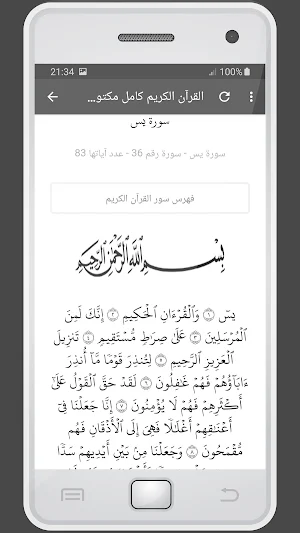 21:34 100%
القرآن الكريم كامل مكتو...
سورة يس
سورة يس - سورة رقم 36 - عدد آياتها 83
فهرس سور القرآن الكريم
بِسْمِ اللَّهِ الرَّحْمَٰنِ الرَّحِيمِ
يسٓ ١ وَٱلْقُرْءَانِ ٱلْحَكِيمِ ٢ إِنَّكَ لَمِنَ
ٱلْمُرْسَلِينَ ٣ عَلَىٰ صِرَٰطٍ مُّسْتَقِيمٍ ٤ تَنزِيلَ
ٱلْعَزِيزِ ٱلرَّحِيمِ ٥ لِتُنذِرَ قَوْمًا مَّآ أُنذِرَ
ءَابَآؤُهُمْ فَهُمْ غَٰفِلُونَ ٦ لَقَدْ حَقَّ ٱلْقَوْلُ عَلَىٰٓ
أَكْثَرِهِمْ فَهُمْ لَا يُؤْمِنُونَ ٧ إِنَّا جَعَلْنَا فِىٓ
أَعْنَٰقِهِمْ أَغْلَٰلًا فَهِىَ إِلَى ٱلْأَذْقَانِ فَهُم
مُّقْمَحُونَ ٨ وَجَعَلْنَا مِنۢ بَيْنِ أَيْدِيهِمْ سَدًّا